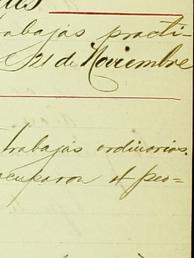 trabajos practi-
21 de Noviembre
trabajos ordinarios.
ocuparon el peo-